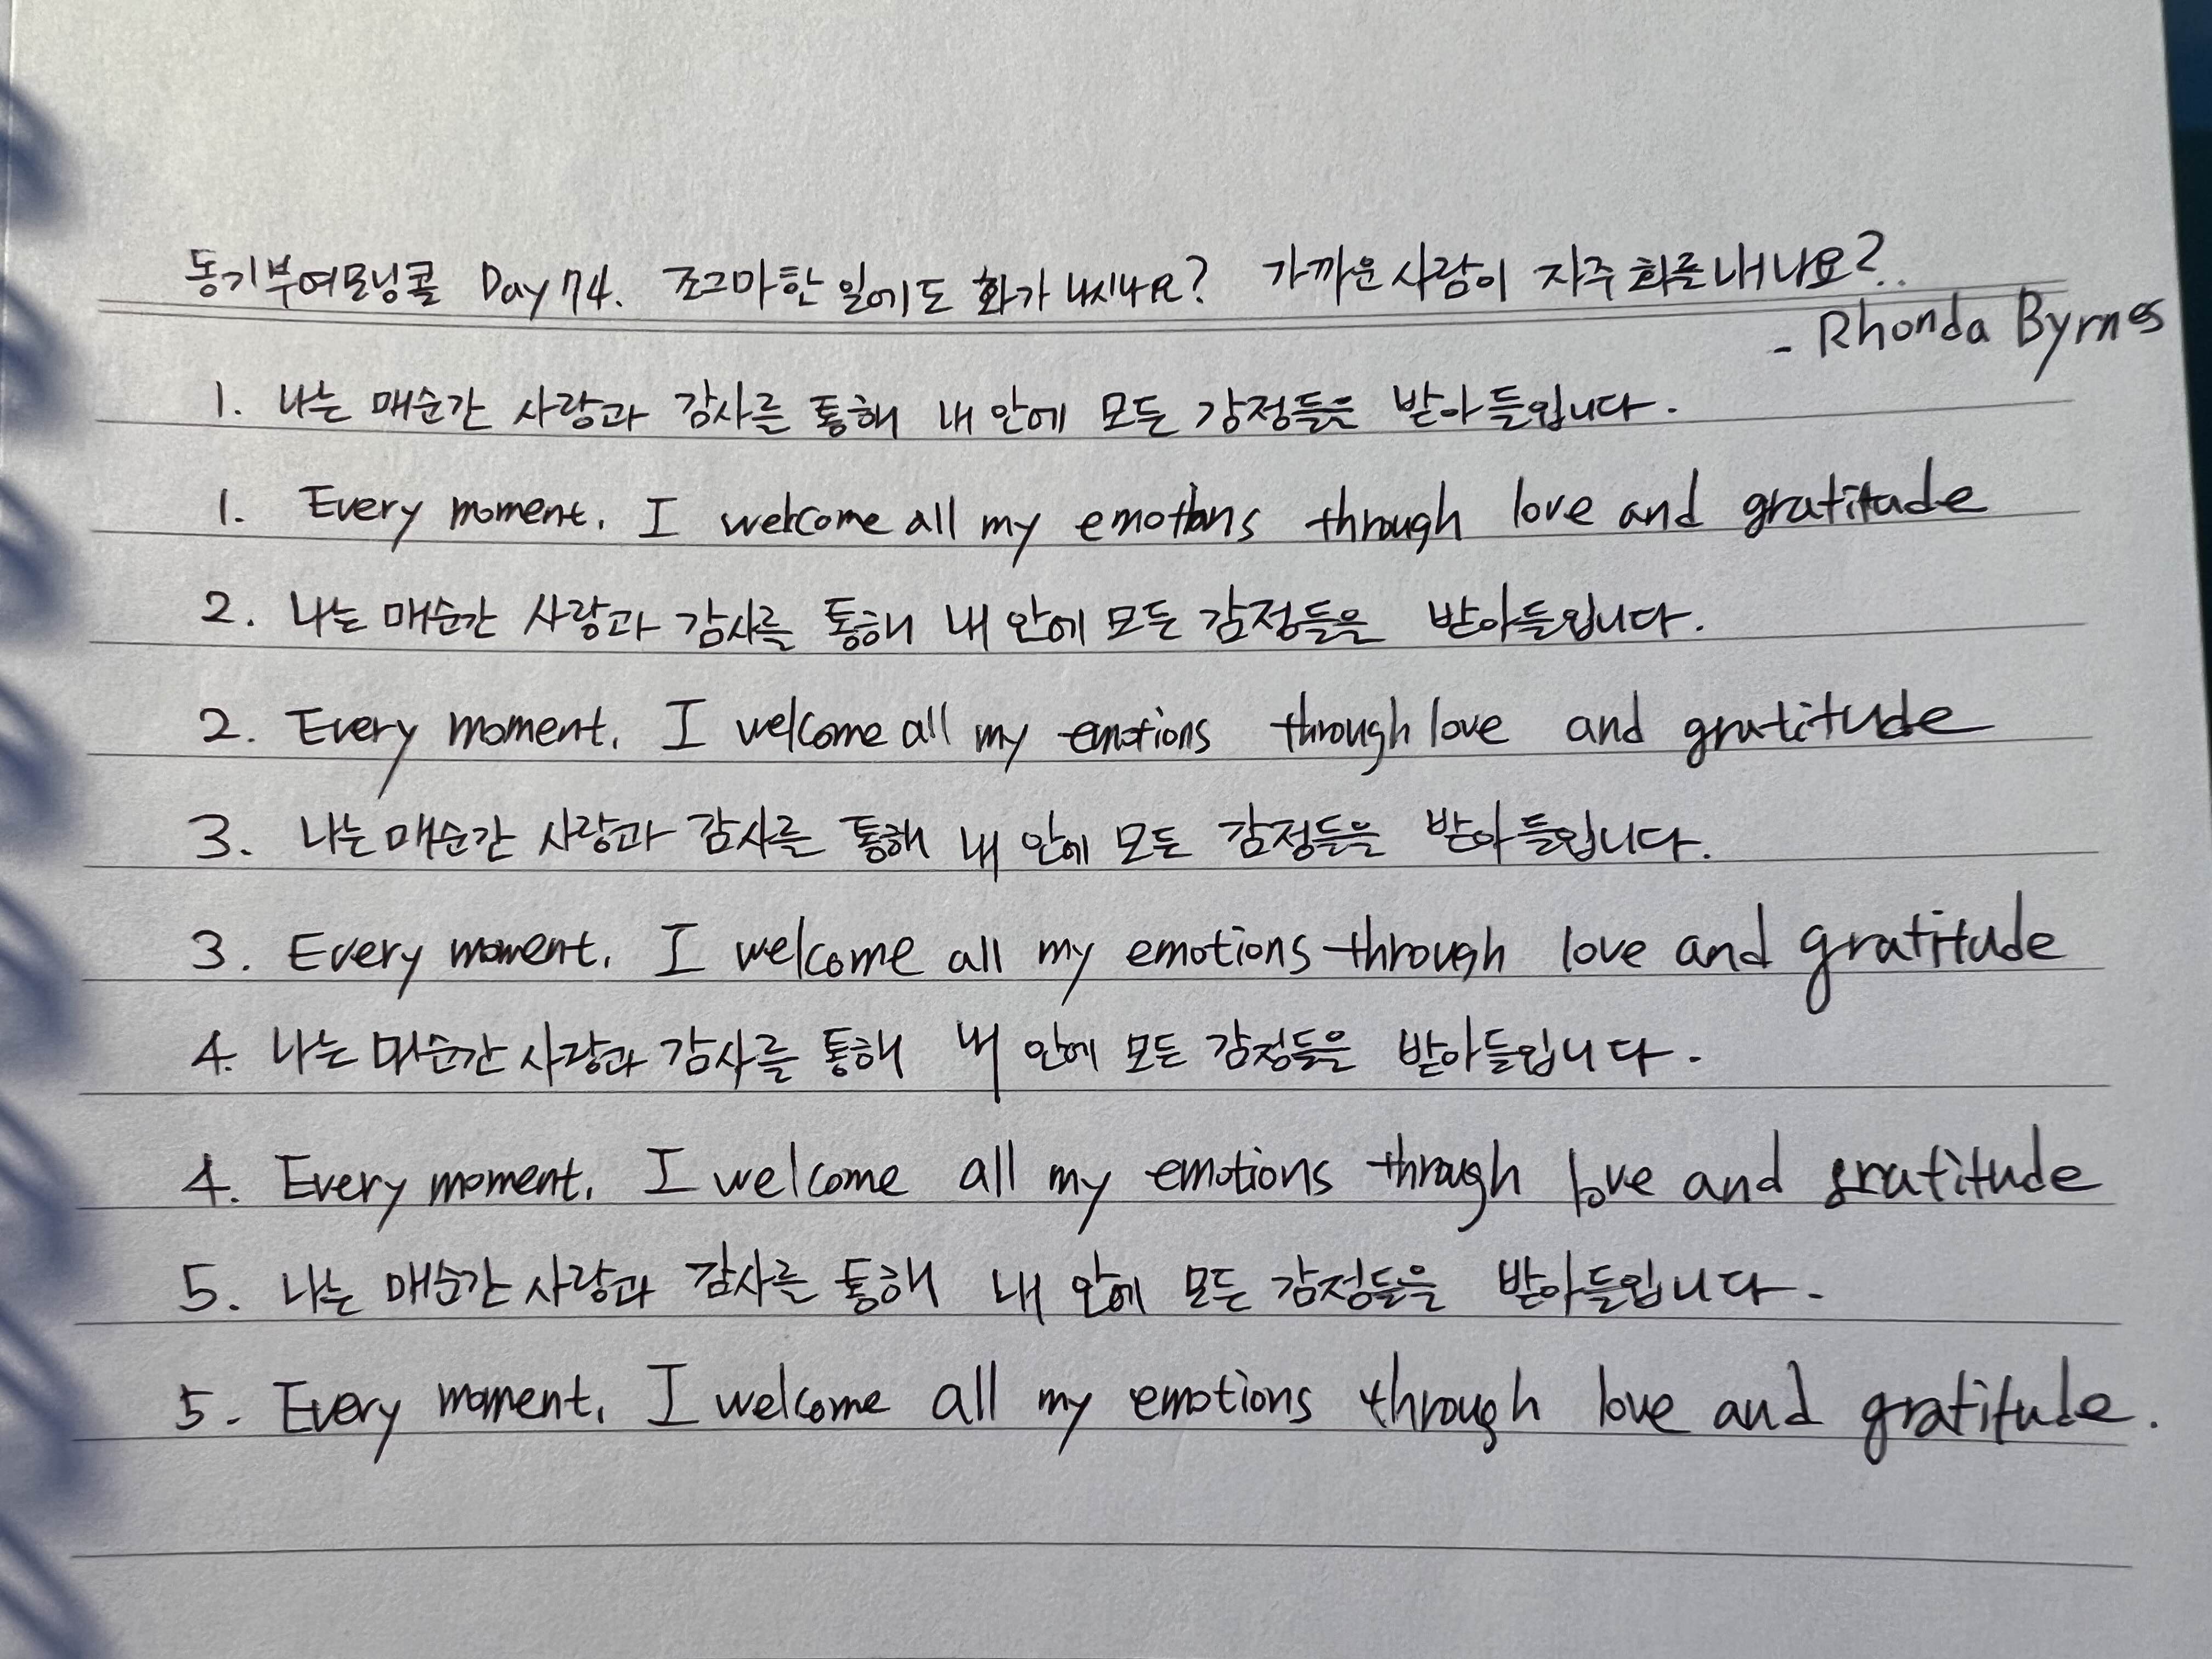 동기부여모닝콜 Day 74. 조그마한 일에도 화가 나시나요? 가까운 사람이 자주 화를 내나요?..
- Rhonda Byrnes
1. 나는 매순간 사랑과 감사를 통해 내 안에 모든 감정들을 받아들입니다.
1. Every moment, I welcome all my emotions through love and gratitude
2. 나는 매순간 사랑과 감사를 통해 내 안에 모든 감정들을 받아들입니다.
2. Every moment, I welcome all my emotions through love and gratitude
3. 나는 매순간 사랑과 감사를 통해 내 안에 모든 감정들을 받아들입니다.
3. Every moment, I welcome all my emotions through love and gratitude
4. 나는 매순간 사랑과 감사를 통해 내 안에 모든 감정들을 받아들입니다.
4. Every moment, I welcome all my emotions through love and gratitude
5. 나는 매순간 사랑과 감사를 통해 내 안에 모든 감정들을 받아들입니다.
5. Every moment, I welcome all my emotions through love and gratitude.